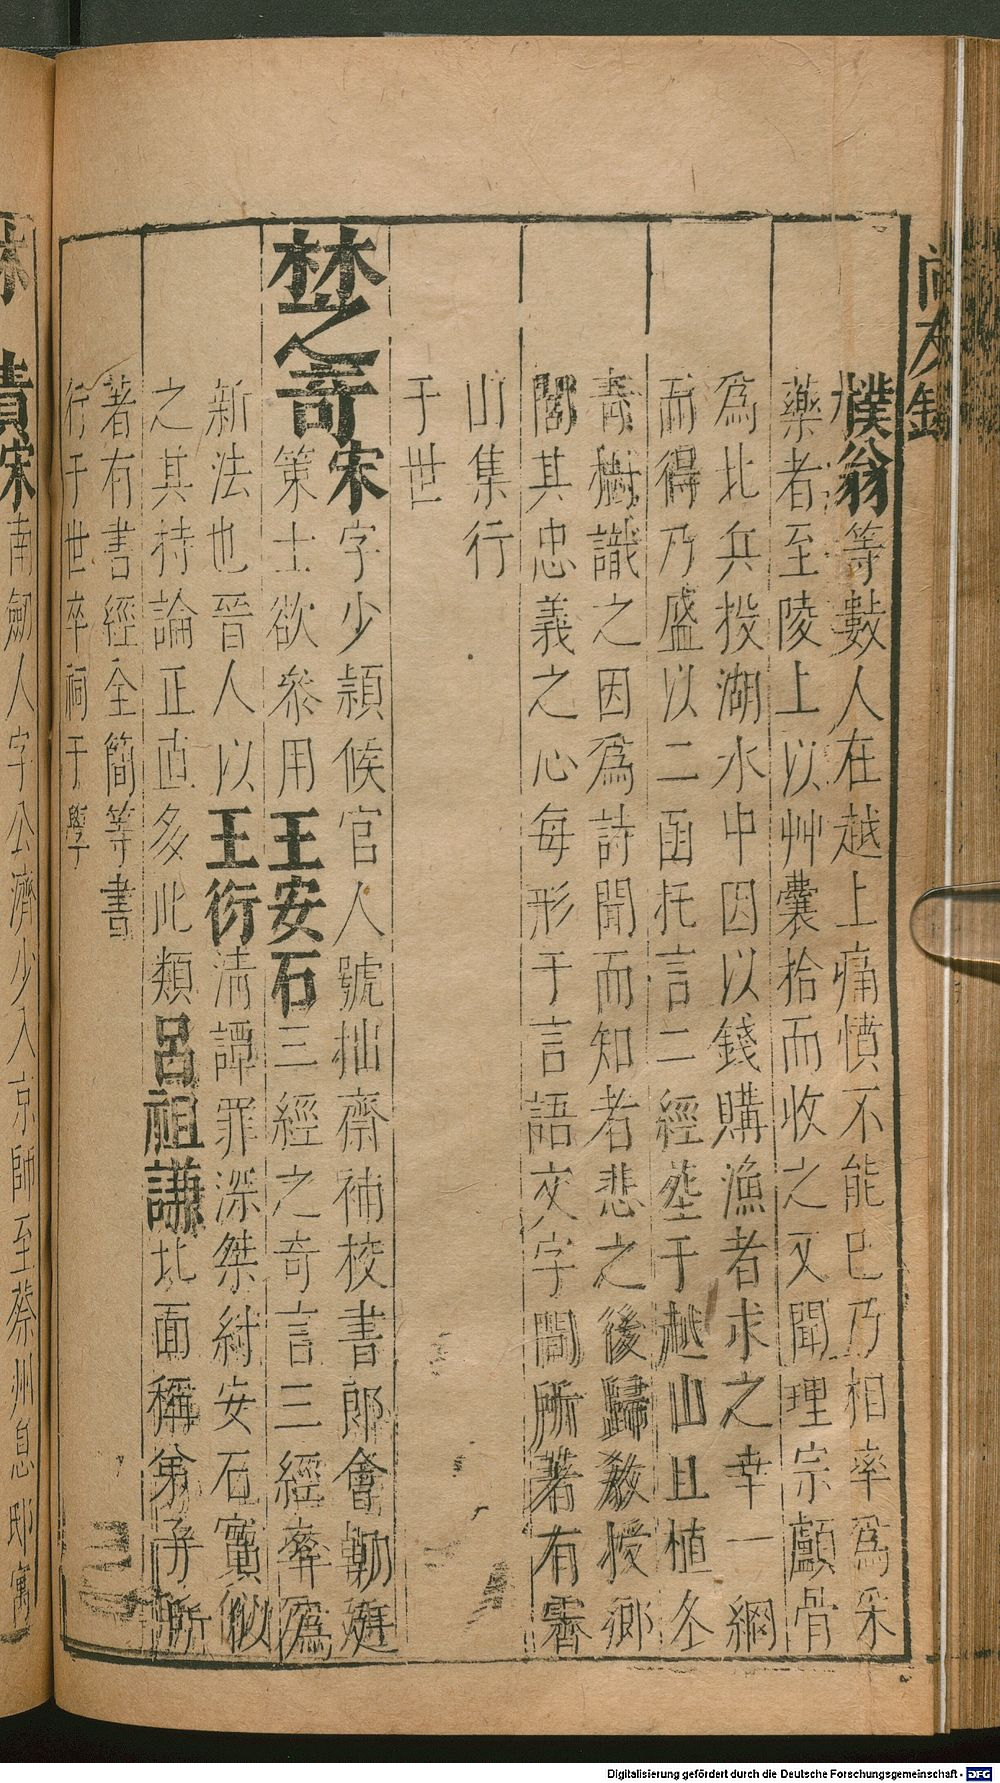 尚友錄
樸翁等數人在越上痛憤不能已乃相率爲采
藥者至陵上以艸囊拾而收之又聞理宗顱骨
爲北兵投湖水中因以錢購漁者求之幸一網
而得乃盛以二函托言二經塟于越山且植冬
青樹識之因爲詩聞而知者悲之後歸敎授鄉
閭其忠義之心每形于言語文字間所著有霽
山集行
于世
林之奇宋字少頴候官人號拙齋補校書郎會朝廷
策士欲叅用王安石三經之奇言三經率爲
新法也晉人以王衍清譚罪深桀紂安石實似
之其持論正直多此類呂祖謙北面稱弟子所
著有書經全簡等書
行于世卒祠于學
宋南劔人字公濟少入京師至蔡州息邸寓
Digitalisierung gefördert durch die Deutsche Forschungsgemeinschaft - DFG